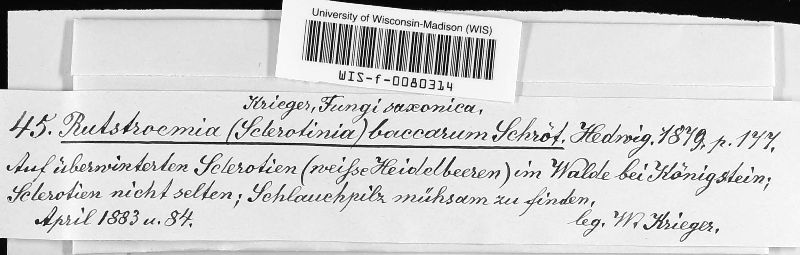 University of Wisconsin-Madison (WIS)
WIS-f-0080314
Krieger, Fungi saxonica.
45. Rutstroemia (Sclerotinia) baccarum Schröt. Hedwig. 1879, p. 177.
Auf überwinterten Sclerotien (weiße Heidelbeeren) im Walde bei Königstein;
Sclerotien nicht selten; Schlauchpilz mühsam zu finden.
April 1883 u. 84.
leg. W. Krieger.